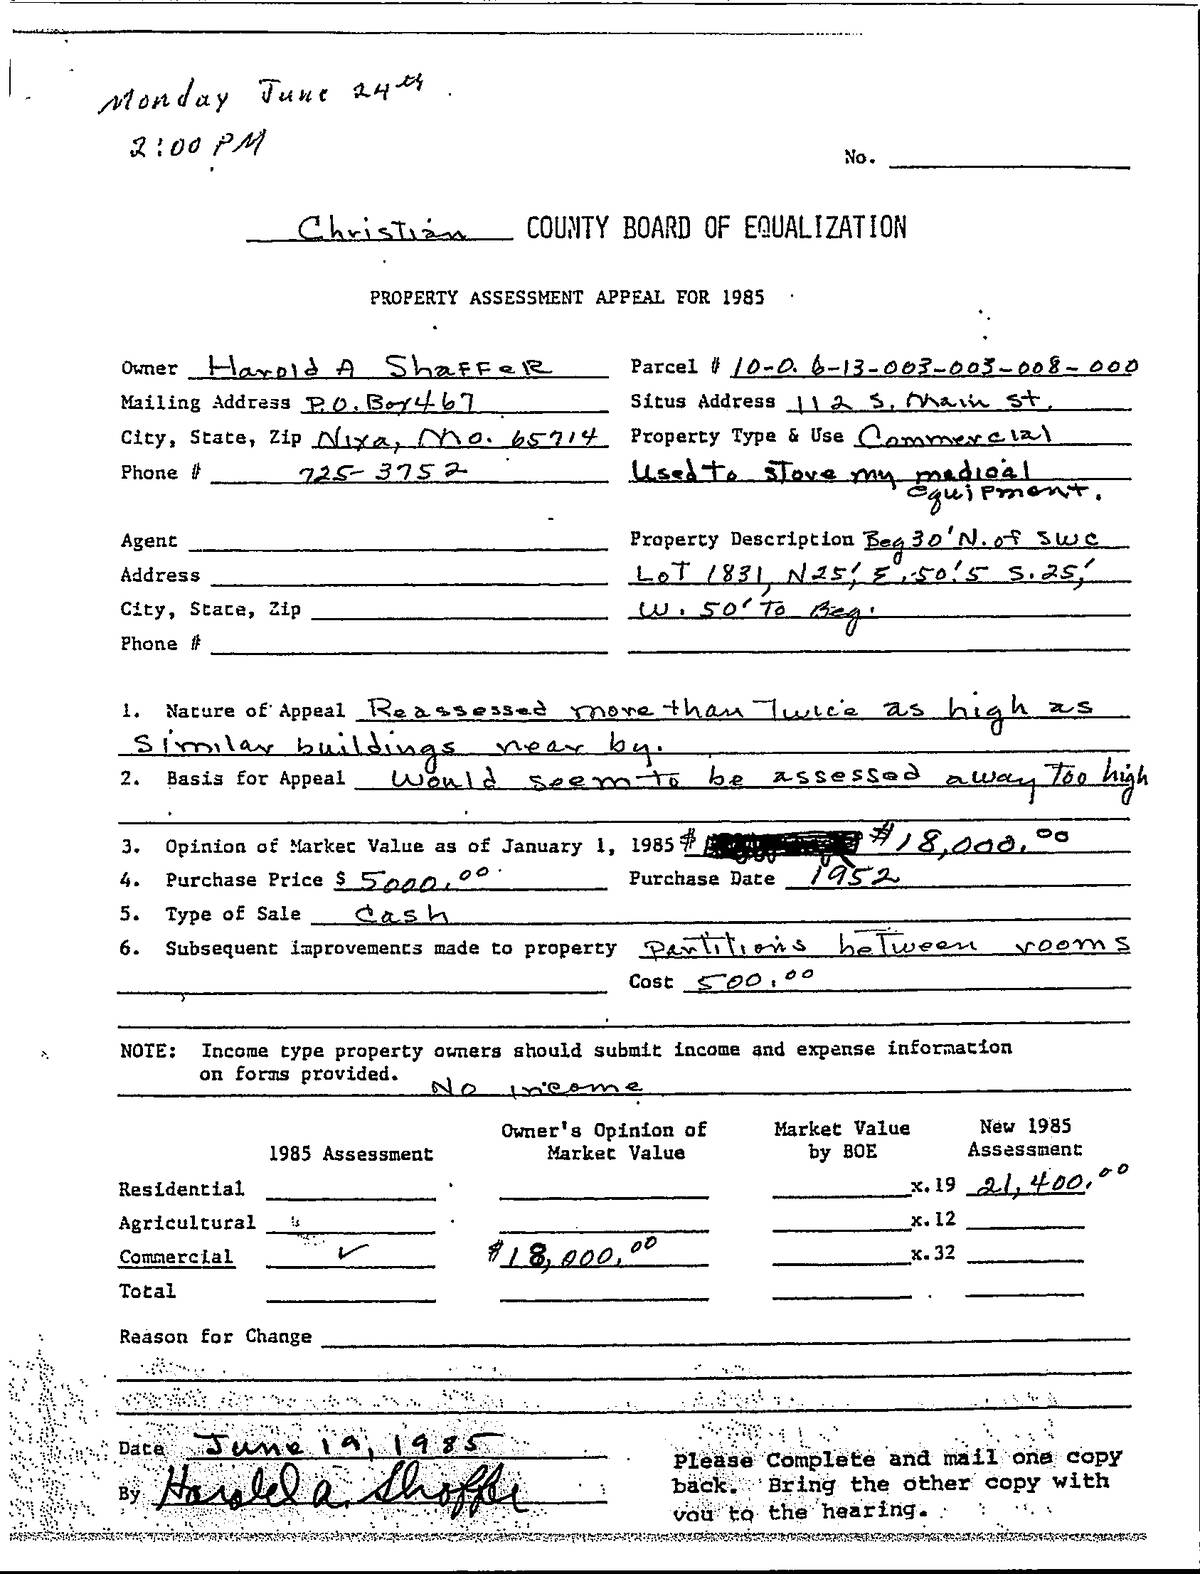 Monday June 24th
2:00 PM
No.
Christian COUNTY BOARD OF EQUALIZATION
PROPERTY ASSESSMENT APPEAL FOR 1985
Owner Harold A Shaffer Parcel # 10-0.6-13-003-003-008-000
Mailing Address P.O. Box 467 Situs Address 112 S. Main St.
City, State, Zip Nixa, Mo. 65714 Property Type & Use Commercial
Phone # 725-3752 Used to store my medical
equipment.
Agent Property Description Beg 30' N. of SWC
Address Lot 1831, N25', E.50!5 S.25,'
City, State, Zip W. 50' To Beg.
Phone #
1. Nature of Appeal Reassessed more than Twice as high as
Similar buildings near by.
2. Basis for Appeal Would seem to be assessed away Too high
3. Opinion of Market Value as of January 1, 1985 $ $18,000.00
4. Purchase Price $ 5000.00 Purchase Date 1952
5. Type of Sale Cash
6. Subsequent improvements made to property Partitions between rooms
Cost 500.00
NOTE: Income type property owners should submit income and expense information
on forms provided. No income
1985 Assessment Owner's Opinion of Market Value Market Value by BOE New 1985 Assessment
Residential x.19 21,400.00
Agricultural x.12
Commercial ✓ $18,000.00 x.32
Total
Reason for Change
Date June 19, 1985
By Harold A. Shaffer
Please Complete and mail one copy
back. Bring the other copy with
you to the hearing.